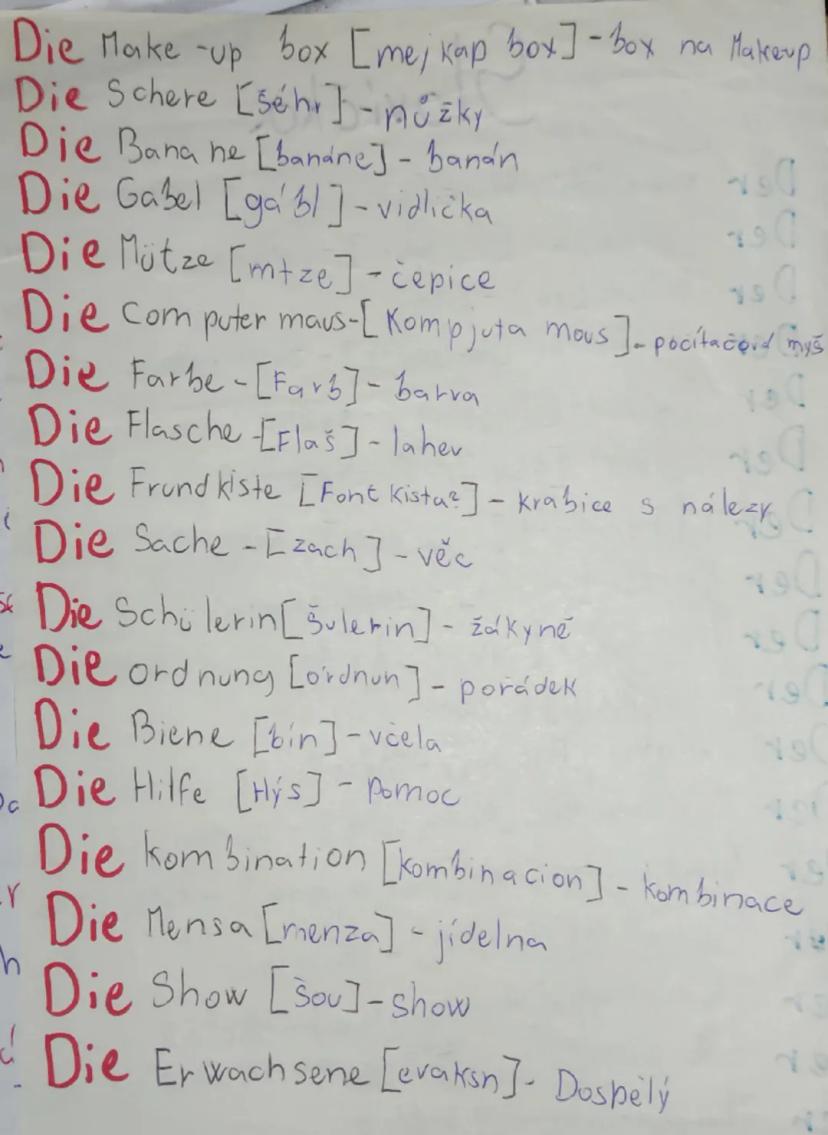 Die Make-up box [mejkap box] - box na Makeup
Die Schere [šéhr] - nůžky
Die Banane [banáne] - banán
Die Gabel [gábl] - vidlička
Die Mütze [mtze] - čepice
Die Computer maus - [Kompjuta mous] - počítačová myš
Die Farbe - [Farb] - barva
Die Flasche - [Flaš] - lahev
Die Frundkiste [Font Kista?] - krabice s nálezy
Die Sache - [zach] - věc
Die Schülerin [šulerin] - žákyně
Die ordnung [órdnun] - pořádek
Die Biene [bín] - včela
Die Hilfe [Hýs] - Pomoc
Die kombination [kombinacion] - kombinace
Die Mensa [menza] - jídelna
Die Show [šou] - show
Die Erwachsene [evaksn] - Dospělý